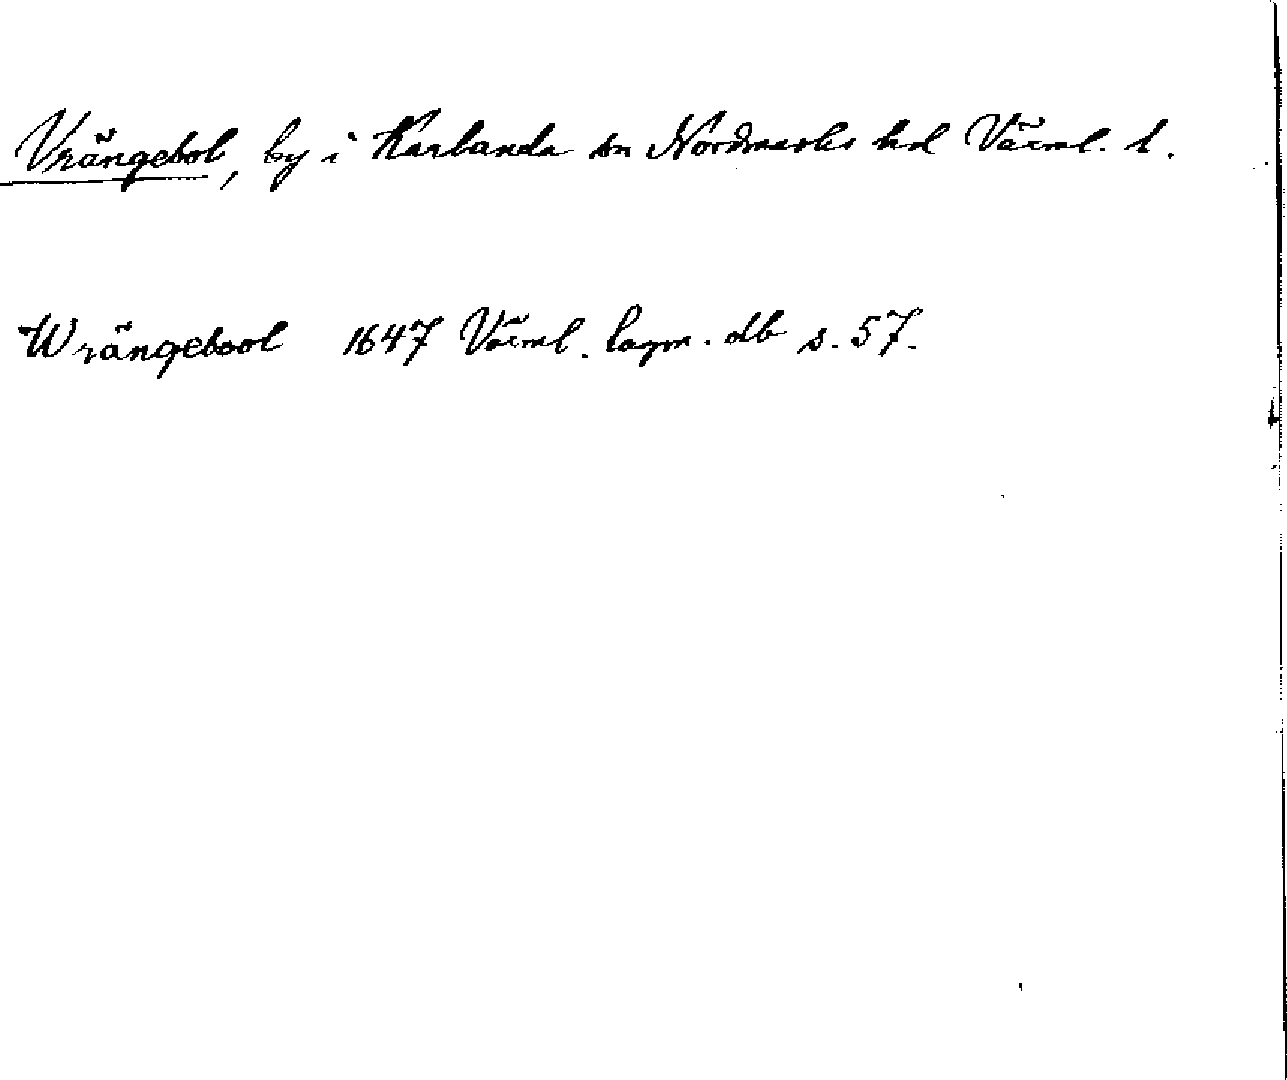 Vrängebol, by i Karlanda sn Nordmarks hd Värml. l.
Wrängebool 1647 Värml. lagm. db s. 57.